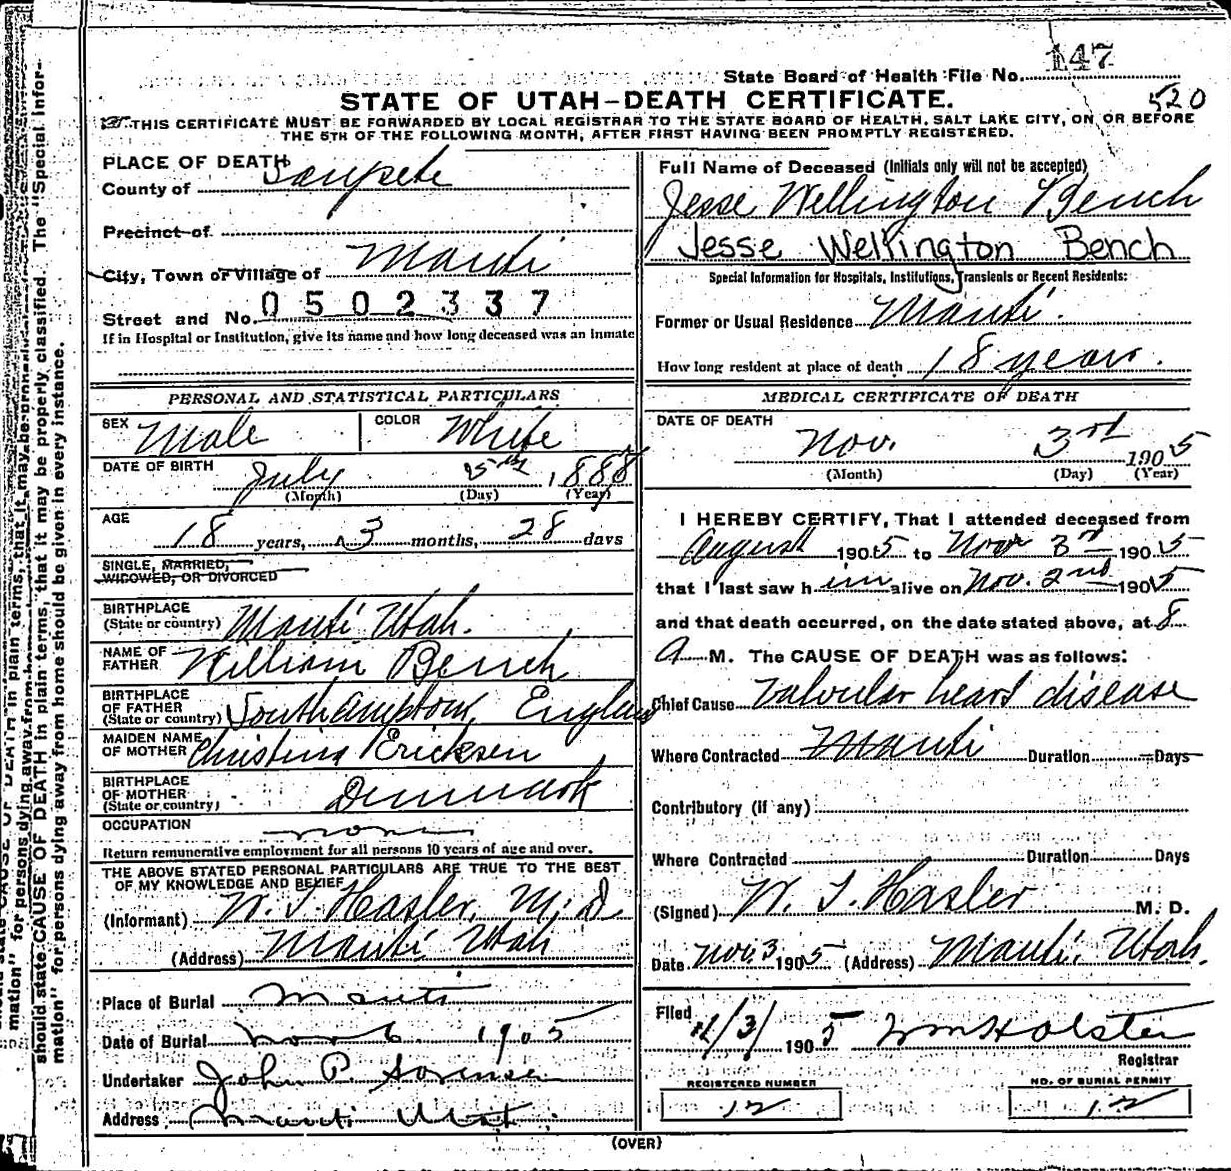 147
State Board of Health File No.
STATE OF UTAH-DEATH CERTIFICATE.
520
THIS CERTIFICATE MUST BE FORWARDED BY LOCAL REGISTRAR TO THE STATE BOARD OF HEALTH, SALT LAKE CITY, ON OR BEFORE
THE 5TH OF THE FOLLOWING MONTH, AFTER FIRST HAVING BEEN PROMPTLY REGISTERED.
PLACE OF DEATH
County of Sanpete
Precinct of
City, Town or Village of Manti
0502337
Street and No.
If in Hospital or Institution, give its name and how long deceased was an inmate
PERSONAL AND STATISTICAL PARTICULARS
SEX Male COLOR White
DATE OF BIRTH July 5th 1888
(Month) (Day) (Year)
AGE
18 years, 3 months, 28 days
SINGLE, MARRIED,
WIDOWED, OR DIVORCED
BIRTHPLACE
(State or country) Manti Utah.
NAME OF
FATHER William Bench
BIRTHPLACE
OF FATHER
(State or country) Southampton, England
MAIDEN NAME
OF MOTHER Christina Ericksen
BIRTHPLACE
OF MOTHER
(State or country) Denmark
OCCUPATION none
Return remunerative employment for all persons 10 years of age and over.
THE ABOVE STATED PERSONAL PARTICULARS ARE TRUE TO THE BEST
OF MY KNOWLEDGE AND BELIEF
(Informant) W. T. Hasler, M.D.
(Address) Manti Utah
Place of Burial Manti
Date of Burial Nov 6 1905
Undertaker John P Sorensen
Address Manti Utah
Full Name of Deceased (Initials only will not be accepted)
Jesse Wellington Bench
Jesse Wellington Bench
Special Information for Hospitals, Institutions, Transients or Recent Residents:
Former or Usual Residence Manti.
How long resident at place of death 18 years.
MEDICAL CERTIFICATE OF DEATH
DATE OF DEATH
Nov. 3rd 1905
(Month) (Day) (Year)
I HEREBY CERTIFY, That I attended deceased from
August 1905 to Nov 3rd 1905
that I last saw him alive on Nov. 2nd 1905
and that death occurred, on the date stated above, at 8
A M. The CAUSE OF DEATH was as follows:
Chief Cause Valvular heart disease
Where Contracted Manti Duration Days
Contributory (if any)
Where Contracted Duration Days
(Signed) W. T. Hasler M. D.
Date Nov. 3 1905 (Address) Manti, Utah.
Filed
11/3/ 1905 Wm Holster
Registrar
REGISTERED NUMBER NO. OF BURIAL PERMIT
12 12
(OVER)
should state CAUSE OF DEATH in plain terms, that it may be properly classified. The "Special Infor-
mation" for persons dying away from home should be given in every instance.